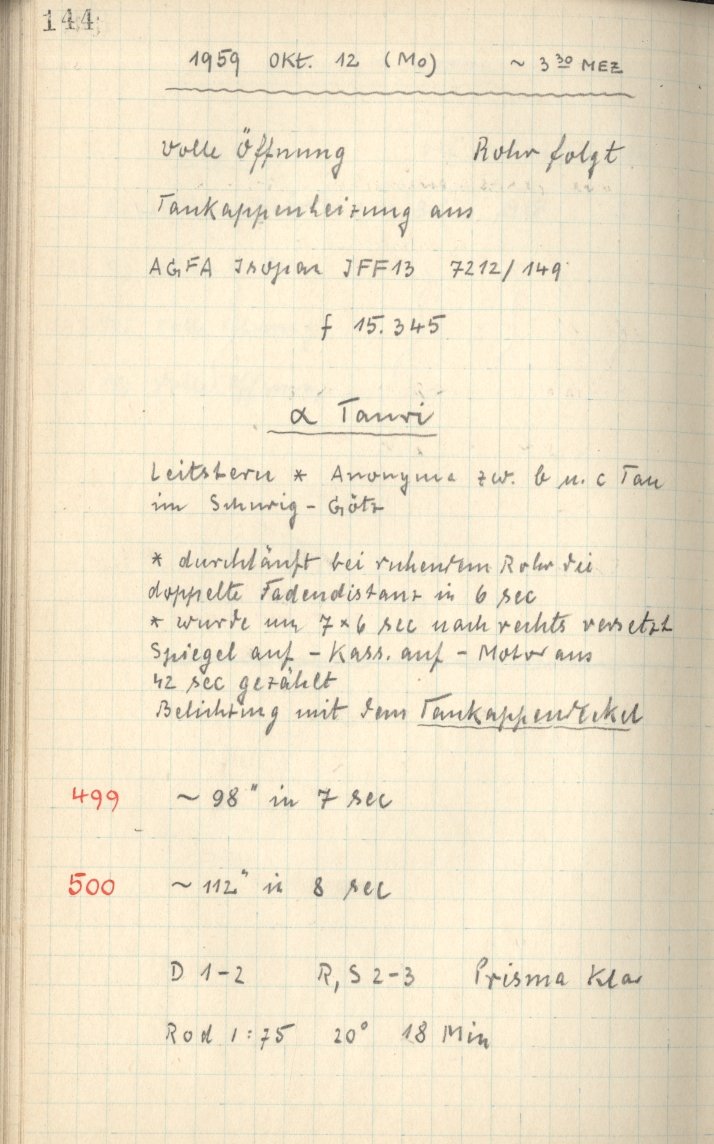 144
1959 OKT. 12 (Mo) ~ 3 30 MEZ
Volle Öffnung Rohr folgt
Taukappenheizung aus
AGFA Isopan IFF13 7212/149
f 15.345
α Tauri
Leitstern * Anonyma zw. b u. c Tau
im Schurig-Götz
* durchläuft bei ruhendem Rohr die
doppelte Fadendistanz in 6 sec
* wurde um 7×6 sec nach rechts versetzt
Spiegel auf - Kass. auf - Motor aus
42 sec gezählt
Belichtung mit dem Taukappendeckel
499 ~ 98" in 7 sec
500 ~ 112" in 8 sec
D 1-2 R, S 2-3 Prisma klar
Rod 1:75 20° 18 Min